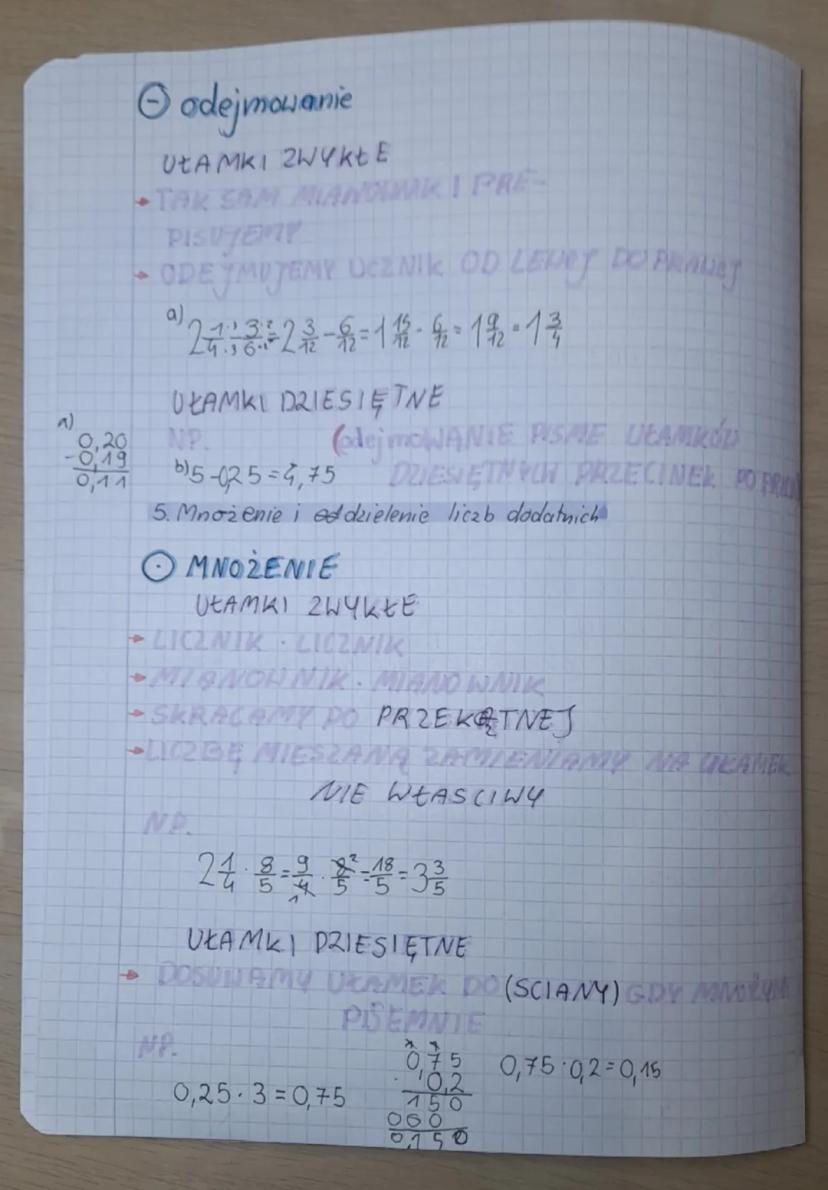 ⊖ odejmowanie
UŁAMKI ZWYKŁE
→ TAK SAM MIANOWNIK I PRE-
PISUJEMY
→ ODEJMUJEMY UCZNIK OD LEWEJ DO PRAWEJ
a) 2 1/4 - 3/6 = 2 3/12 - 6/12 = 1 15/12 - 6/12 = 1 9/12 = 1 3/4
UŁAMKI DZIESIĘTNE
a)
0,20
-0,19
0,11
NP. (odejmOWANIE PISME UŁAMKÓW
b) 5-0,25=4,75 DZIESIĘTNYCH PRZECINEK POD
5. Mnożenie i dzielenie liczb dodatnich
⊙ MNOŻENIE
UŁAMKI ZWYKŁE
→ LICZNIK · LICZNIK
→ MIANOWNIK · MIANOWNIK
→ SKRACAMY PO PRZEKĄTNEJ
→ LICZBĘ MIESZANĄ ZAMIENIAMY NA UŁAMEK
NIE WŁASCIWY
NP.
2 1/4 · 8/5 = 9/4 · 8/5 = 18/5 = 3 3/5
UŁAMKI DZIESIĘTNE
→ DOSUWAMY UŁAMEK DO (SCIANY) GDY MNOŻYMY
PISEMNIE
NP.
0,25 · 3 = 0,75
0,75
· 0,2
150
000
0,150
0,75 · 0,2 = 0,15